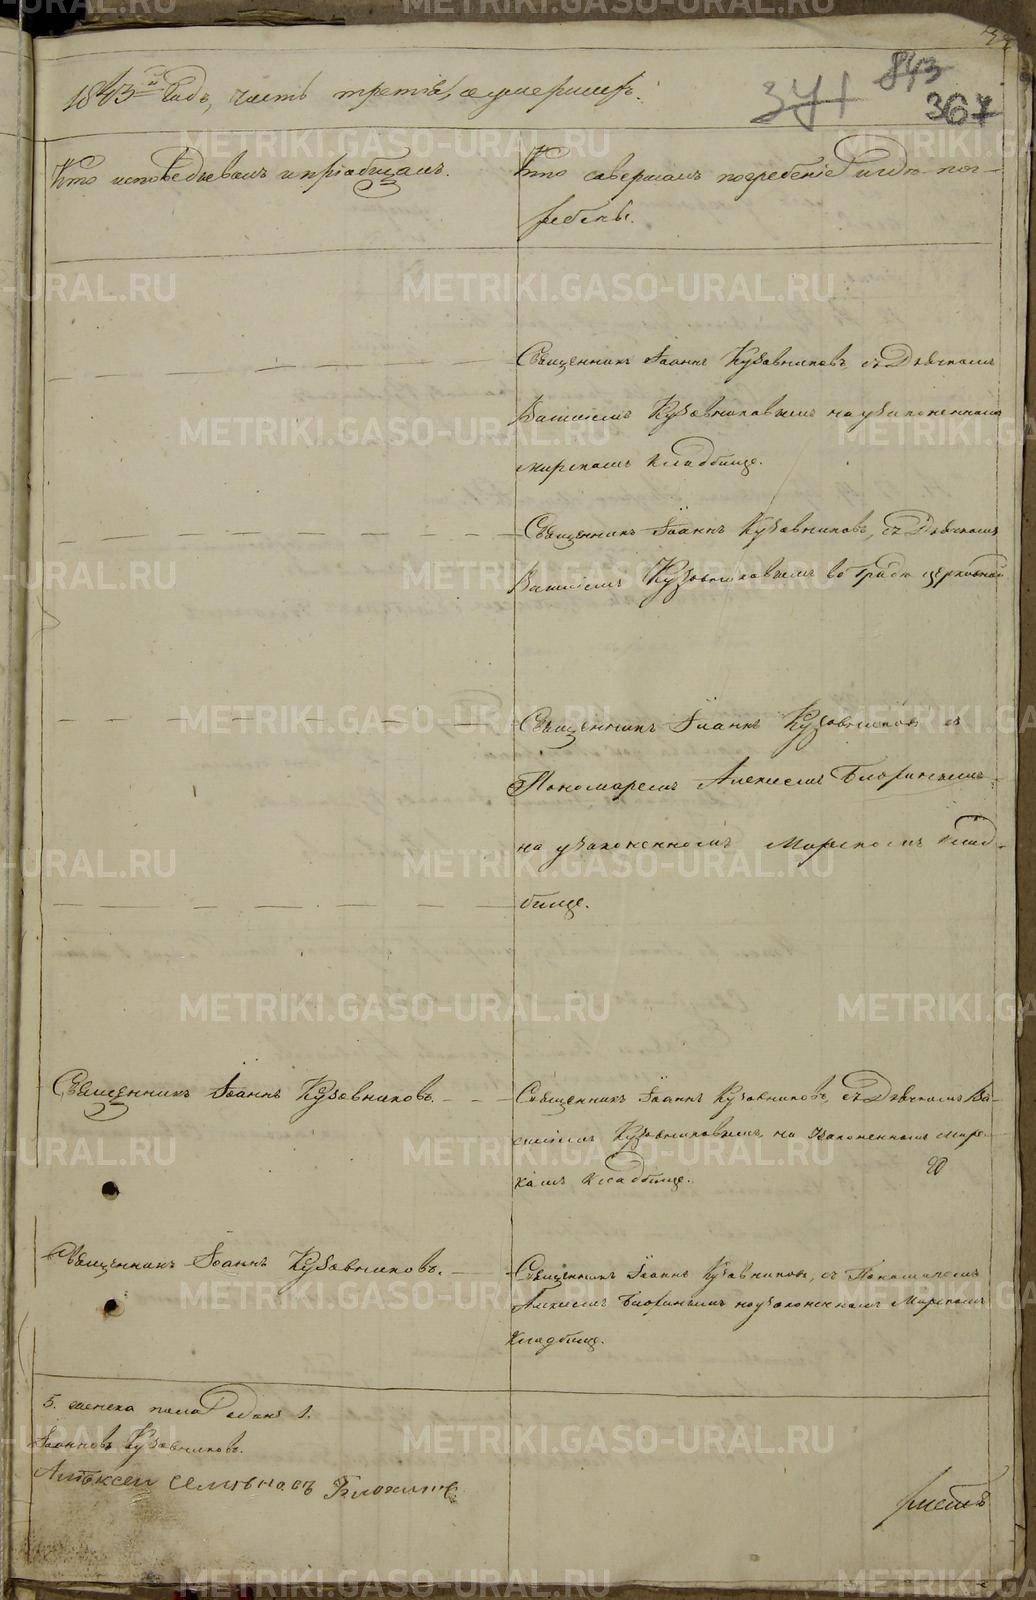 1843й Годъ, часть третья, о умершихъ.
371
843
367
Кто исповѣдывалъ и пріобщалъ.
Кто совершалъ погребеніе и гдѣ пог-
ребены.
Священникъ Іоаннъ Кузовниковъ, съ Дьячкомъ
Кузовниковымъ на узаконенномъ
мирскомъ кладбище.
Священникъ Іоаннъ Кузовниковъ, съ Дьячкомъ
Кузовниковымъ въ градѣ церковной
Священникъ Іоаннъ Кузовниковъ съ
Пономаремъ Алексеемъ
на узаконенномъ Мирскомъ клад-
бище.
Священникъ Іоаннъ Кузовниковъ.
Священникъ Іоаннъ Кузовниковъ, съ Дьячкомъ Ва-
Кузовниковымъ, на узаконенномъ мирс-
комъ кладбище.
Священникъ Іоаннъ Кузовниковъ.
Священникъ Іоаннъ Кузовниковъ, съ Пономаремъ
Алексеемъ на узаконенномъ Мирскомъ
Кладбище.
5. женска пола одна 1.
Іоаннъ Кузовниковъ.
Алѣксей
листъ
METRIKI.GASO-URAL.RU